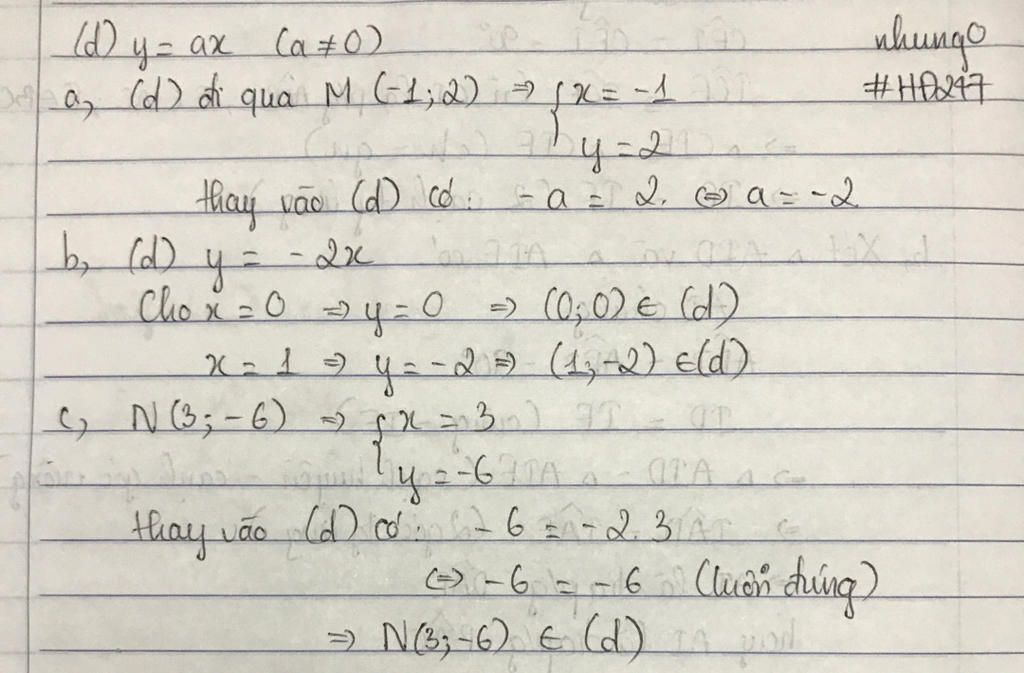 (d) y = ax (a ≠ 0) nhung0
a, (d) đi qua M (-1; 2) => { x = -1 #HĐ247
y = 2
thay vào (d) có: - a = 2. <=> a = -2
b, (d) y = - 2x
Cho x = 0 => y = 0 => (0; 0) ∈ (d)
x = 1 => y = -2 => (1; -2) ∈ (d)
c, N (3; -6) => { x = 3
y = -6
thay vào (d) có: - 6 = -2. 3
<=> -6 = -6 (luôn đúng)
=> N(3; -6) ∈ (d)